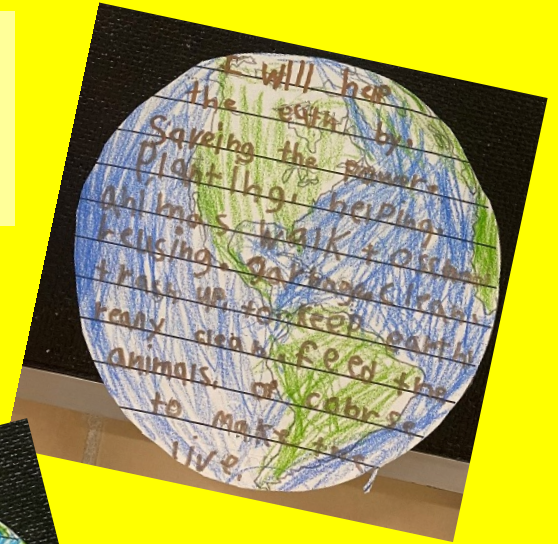 I will help
the eath by.
Saveing the power.
Planting, helping,
Animals. walk to
reusing.
trash up to keep earth
really clean, feed the
animals. of cabrse
to make the
live.